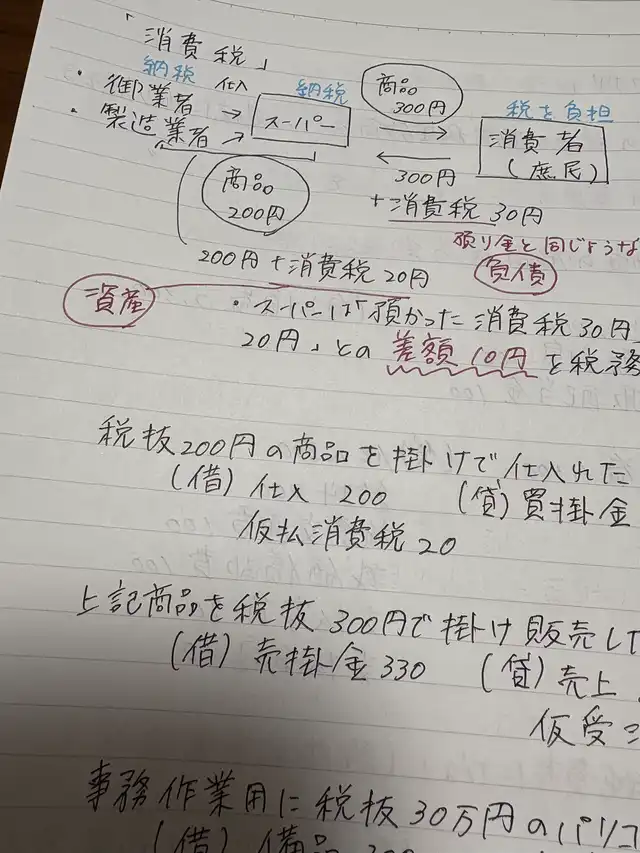 「消費税」
納税 仕入 納税 商品 300円 税を負担
・御業者 →
・製造業者 → スーパー → 消費者
(庶民)
商品 200円 ← 300円
+消費税 30円
200円+消費税20円
預り金と同じような
負債
資産
・スーパーは「預かった消費税30円」
20円」との差額10円を税務
税抜200円の商品を掛けで仕入れた
(借)仕入 200 (貸)買掛金
仮払消費税20
上記商品を税抜300円で掛け販売して
(借)売掛金330 (貸)売上
仮受
事務作業用に税抜30万円のパソコ
(借)備品 300